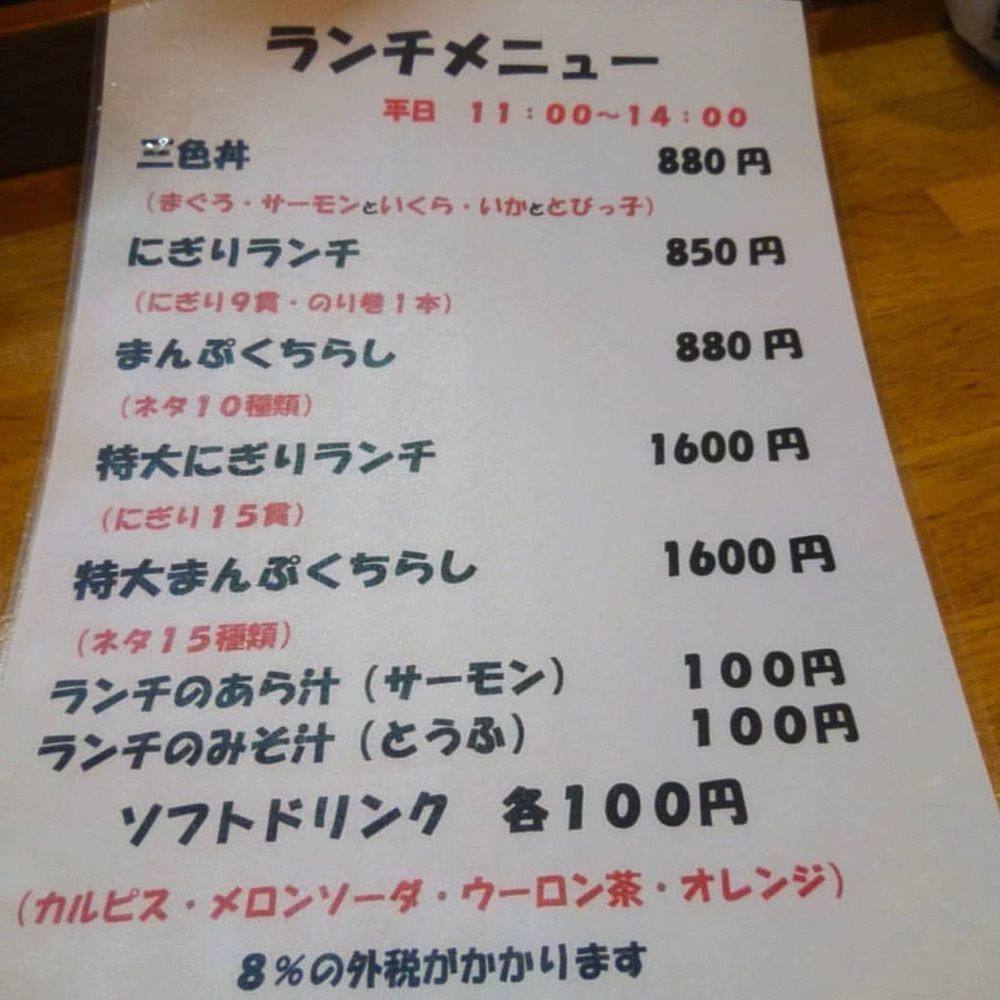 ランチメニュー
平日 11：00～14：00
三色丼 880円
（まぐろ・サーモンといくら・いかととびっ子）
にぎりランチ 850円
（にぎり9貫・のり巻1本）
まんぷくちらし 880円
（ネタ10種類）
特大にぎりランチ 1600円
（にぎり15貫）
特大まんぷくちらし 1600円
（ネタ15種類）
ランチのあら汁（サーモン） 100円
ランチのみそ汁（とうふ） 100円
ソフトドリンク 各100円
（カルピス・メロンソーダ・ウーロン茶・オレンジ）
8％の外税がかかります